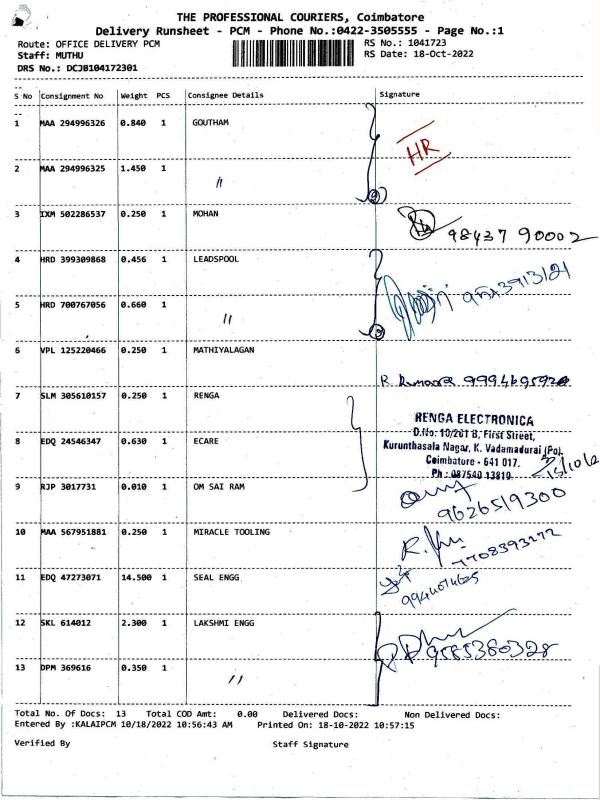 THE PROFESSIONAL COURIERS, Coimbatore
Delivery Runsheet - PCM - Phone No.:0422-3505555 - Page No.:1
Route: OFFICE DELIVERY PCM RS No.: 1041723
Staff: MUTHU RS Date: 18-Oct-2022
DRS No.: DCJB104172301
S No Consignment No Weight PCS Consignee Details Signature
1 MAA 294996326 0.840 1 GOUTHAM
HR
2 MAA 294996325 1.450 1 〃
3 IXM 502286537 0.250 1 MOHAN
98437 90002
4 HRD 399309868 0.456 1 LEADSPOOL
5 HRD 700767056 0.660 1 〃
6 VPL 125220466 0.250 1 MATHIYALAGAN
R.
7 SLM 305610157 0.250 1 RENGA
RENGA ELECTRONICA
D.No: 10/201 B, First Street,
8 EDQ 24546347 0.630 1 ECARE
Kurunthasala Nagar, K. Vadamadurai (Po),
Coimbature - 641 017.
Ph : 087540 13810
9 RJP 3017731 0.010 1 OM SAI RAM
9626519300
10 MAA 567951881 0.250 1 MIRACLE TOOLING
7708393272
11 EDQ 47273071 14.500 1 SEAL ENGG
12 SKL 614012 2.300 1 LAKSHMI ENGG
9585360328
13 DPM 369616 0.350 1 〃
Total No. Of Docs: 13 Total COD Amt: 0.00 Delivered Docs: Non Delivered Docs:
Entered By :KALAIPCM 10/18/2022 10:56:43 AM Printed On: 18-10-2022 10:57:15
Verified By Staff Signature